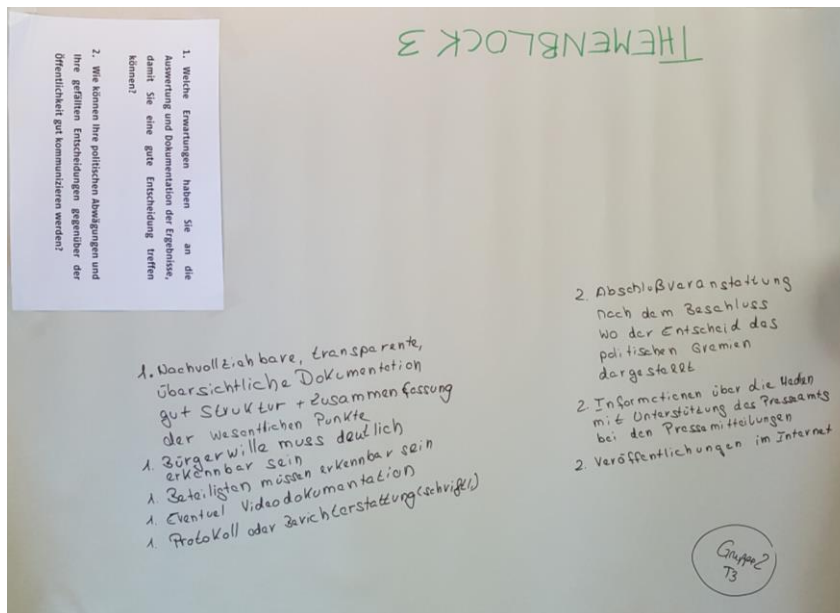 THEMENBLOCK 3
1. Welche Erwartungen haben Sie an die
Auswertung und Dokumentation der Ergebnisse,
damit Sie eine gute Entscheidung treffen
können?
2. Wie können Ihre politischen Abwägungen und
Ihre gefällten Entscheidungen gegenüber der
Öffentlichkeit gut kommunizieren werden?
1. Nachvollziehbare, transparente,
übersichtliche Dokumentation
gut Struktur + Zusammenfassung
der wesentlichen Punkte
1. Bürgerwille muss deutlich
erkennbar sein
1. Beteiligten müssen erkennbar sein
1. Eventuel Videodokumentation
1. Protokoll oder Berichterstattung (schriftl.)
2. Abschlußveranstaltung
nach dem Beschluss
wo der Entscheid des
politischen Gremien
dargestellt
2. Informationen über die Medien
mit Unterstützung des Presseamts
bei den Pressemitteilungen
2. Veröffentlichungen im Internet
Gruppe 2
T3